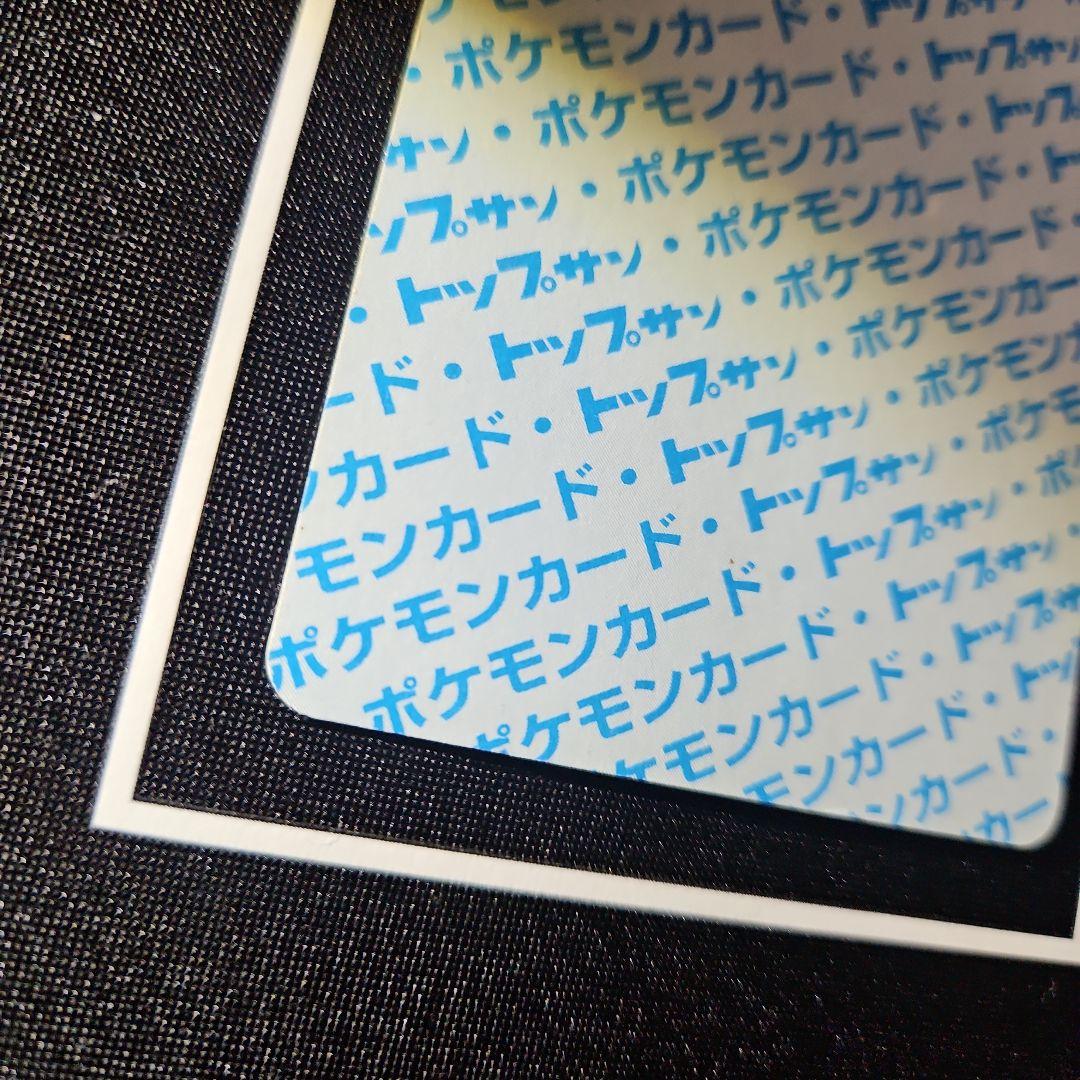 ・ポケモンカード・トップサン
サン・ポケモンカード・トップサン
ップサン・ポケモンカード・トップ
・トップサン・ポケモンカード・ト
ード・トップサン・ポケモンカード・
ンカード・トップサン・ポケモンカー
モンカード・トップサン・ポケモンカ
ポケモンカード・トップサン・ポケモ
ポケモンカード・トップサン・ポ
ポケモンカード・トップサン・
ケモンカード・トップサ
モンカード・トップ
ンカード・
カー